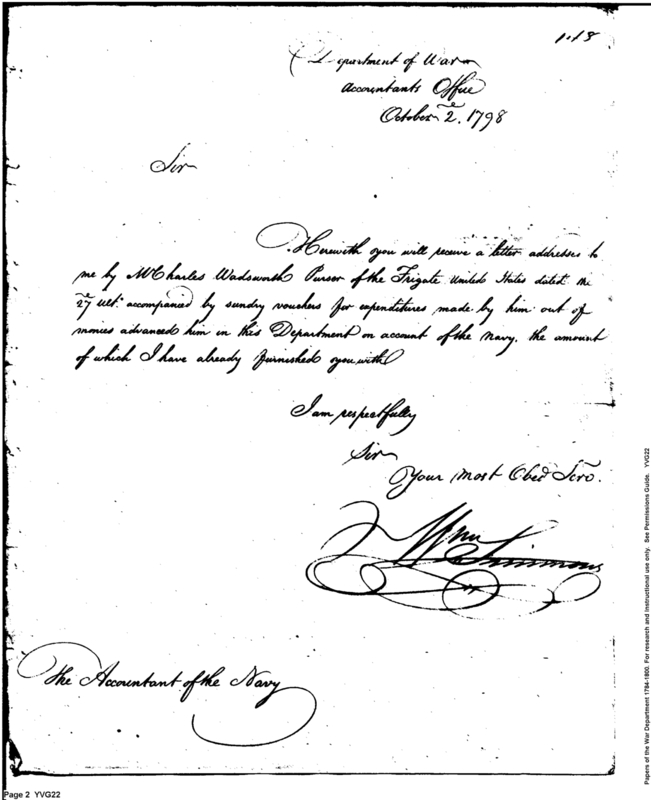 1.18
Department of War
Accountants Office
October 2.e 1798
Sir
Herewith you will receive a letter addresses to
me by Mr Charles Wadsworth Purser of the Frigate United States dated the
27e Ulto. accompanied by sundry vouchers for expenditures made by him out of
monies advanced him in this Department on account of the Navy, the amount
of which I have already furnished you with
I am respectfully
Sir
Your Most Obed Serv.
Wm Simmons
The Accountant of the Navy
Page 2 YVG22
Papers of the War Department 1784-1800. For research and instructional use only. See Permissions Guide. YVG22